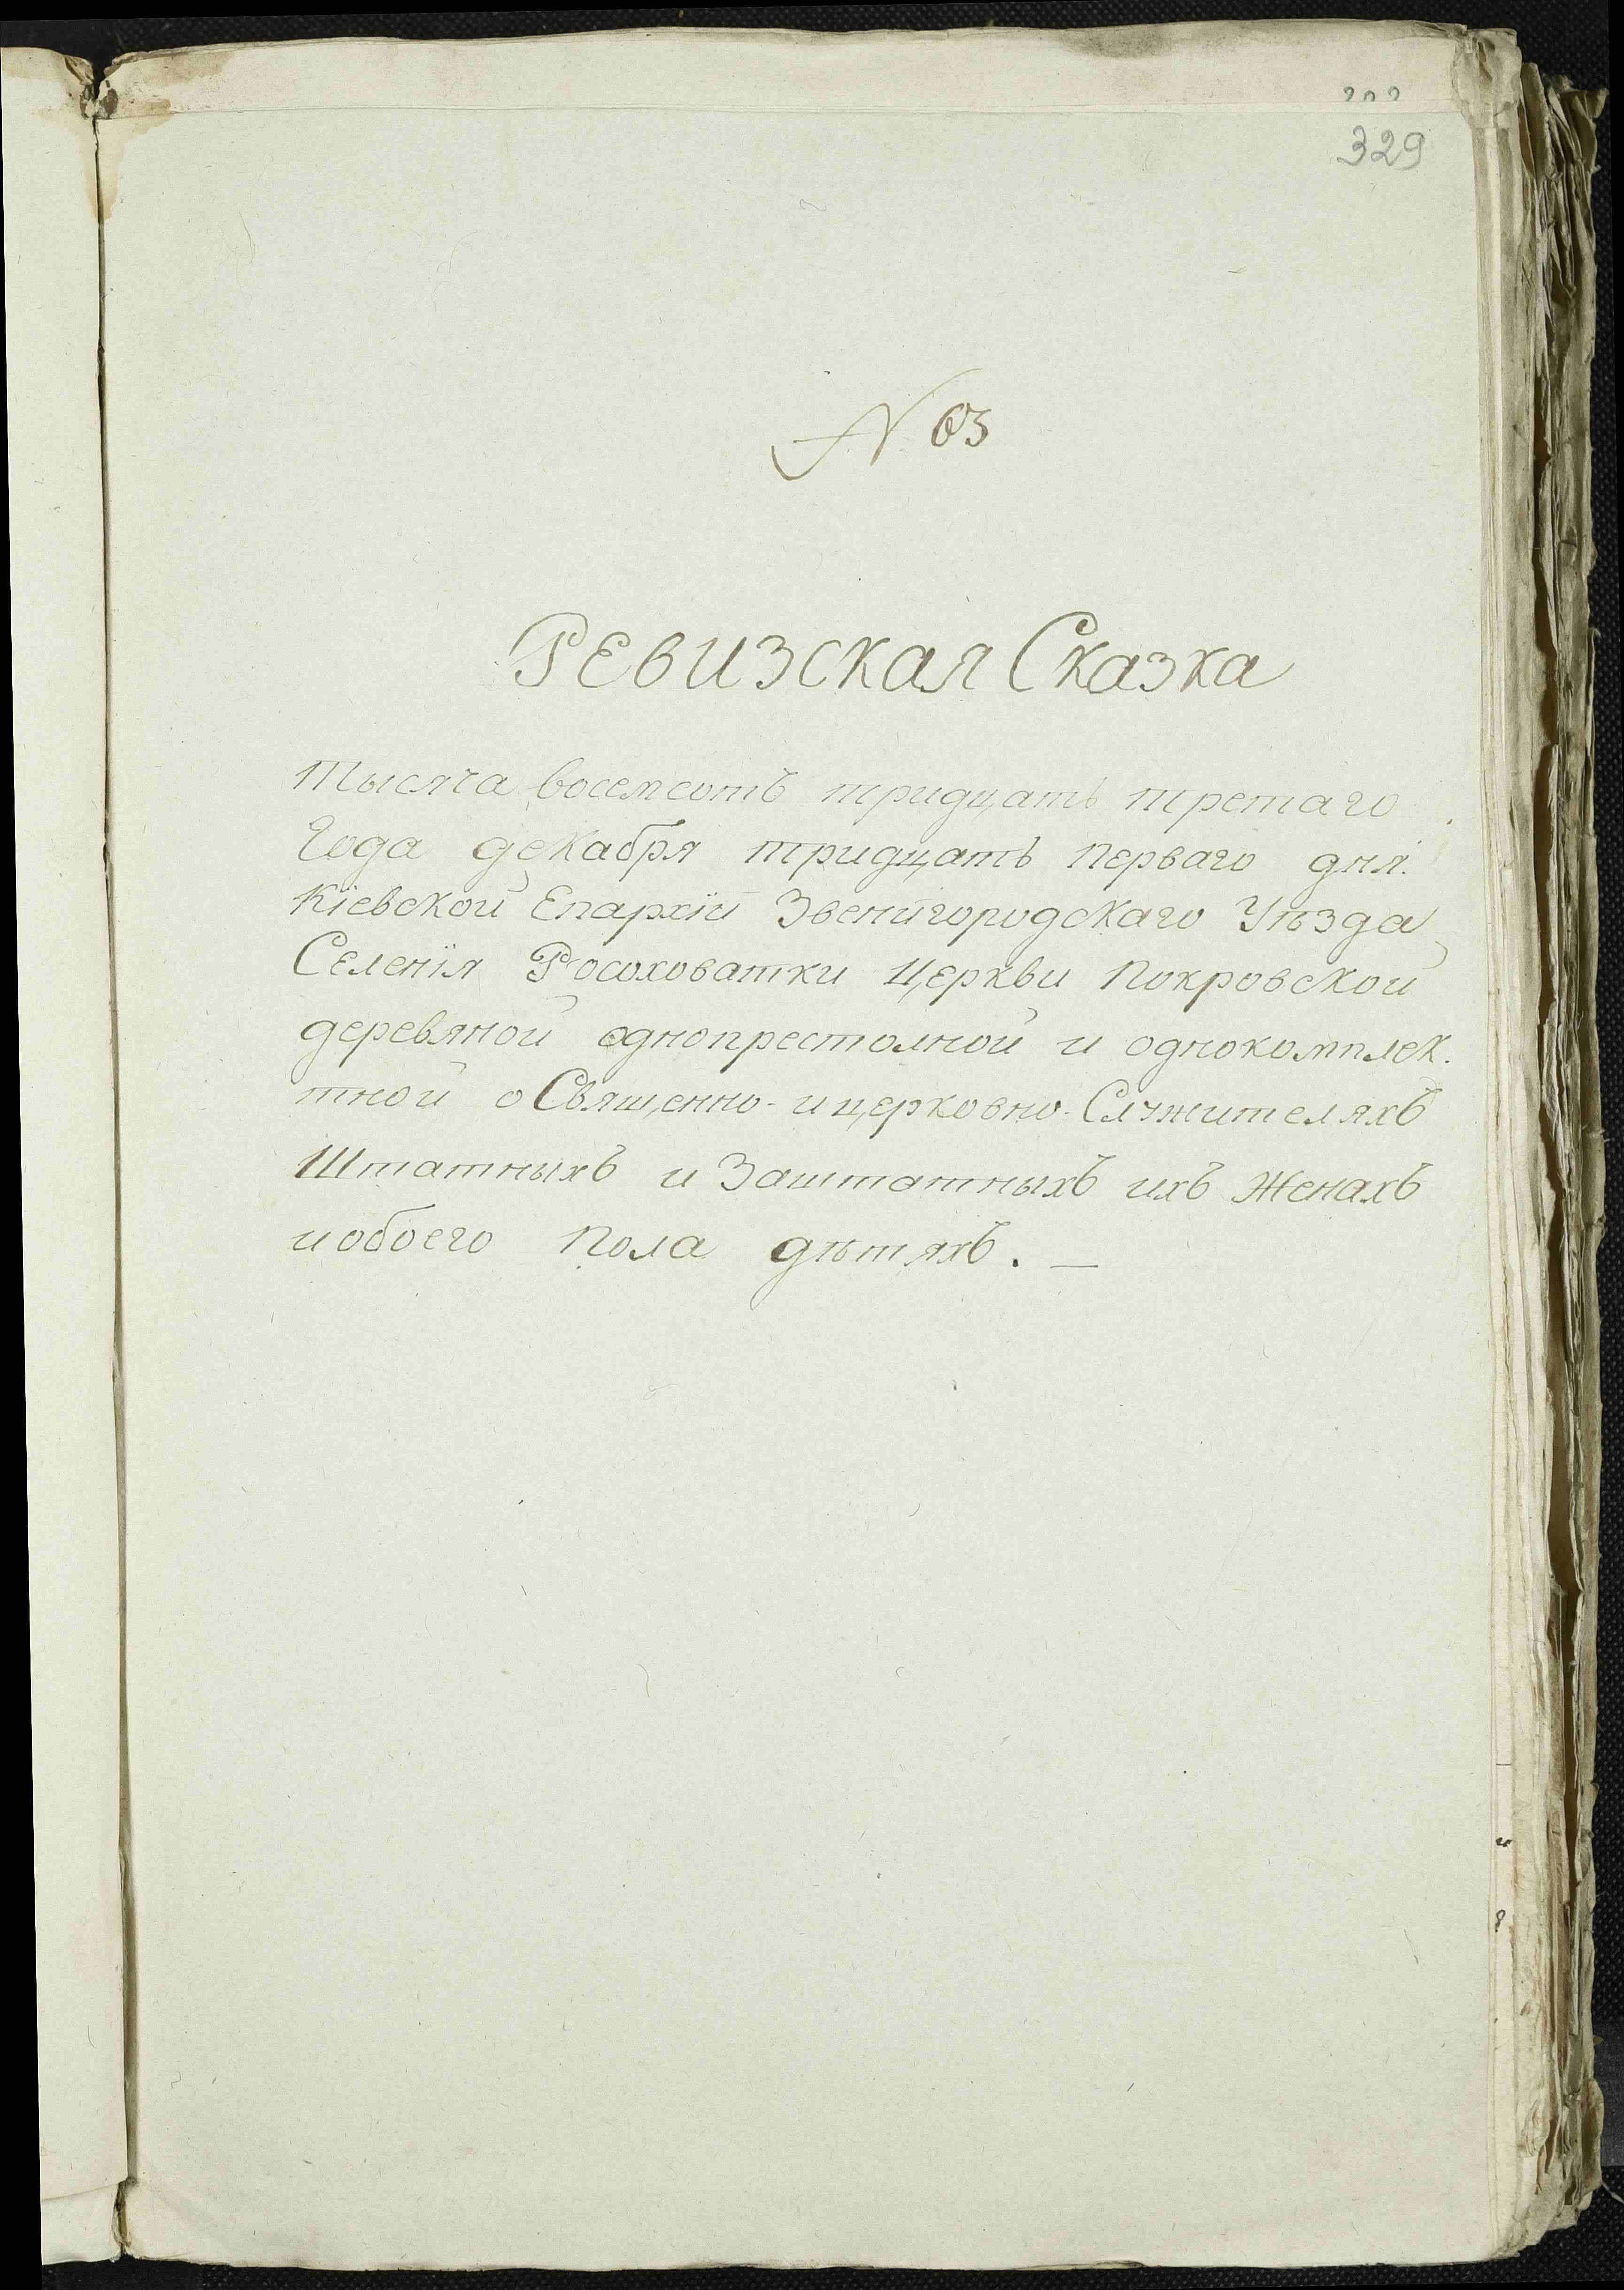 329
N 63
Ревизская Сказка
Тысяча восемсотъ тридцать третаго
Года декабря тридцать перваго дня.
Кіевской Епархіи Звенигородскаго Уѣзда
Селенія Росоховатки Церкви Покровской
деревяной однопрестолной и однокомплек.
тной о Священно- и церковно-Служителяхъ
Штатныхъ и Заштатныхъ ихъ Женахъ
и обоего Пола дѣтяхъ. —